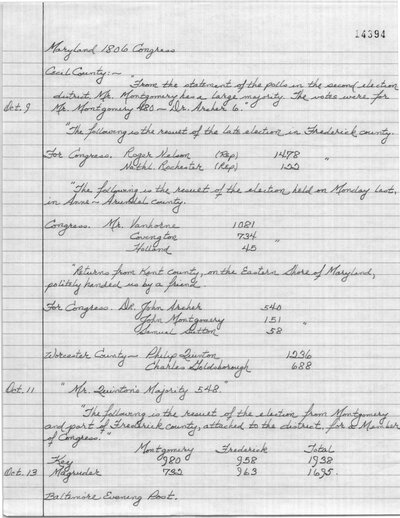 14394
Maryland 1806 Congress
Cecil County:~
"From the statement of the polls in the second election
district Mr. Montgomery has a large majority. The votes were for
Oct. 9 Mr. Montgomery 480 ~ Dr. Archer 6."
"The following is the result of the late election in Frederick county.
For Congress. Roger Nelson (Rep) 1478 "
Nathl. Rochester (Rep) 122
"The following is the result of the election held on Monday last,
in Anne~Arundel county.
Congress. Mr. Vanhorne 1081
Covington 734 "
Holland 45
"Returns from Kent county, on the Eastern Shore of Maryland,
politely handed us by a friend
For Congress. DR. John Archer 540
John Montgomery 151 "
Samuel Sutton 58
Worcester County~ Philip Quinton 1236
Charles Goldsborough 688
Oct. 11 "Mr. Quinton's Majority 548."
"The following is the result of the election from Montgomery
and part of Frederick county, attached to the district, for a Member
of Congress."
Montgomery Frederick Total
Key 980 958 1938
Oct. 13 Magruder 732 963 1695.
Baltimore Evening Post.